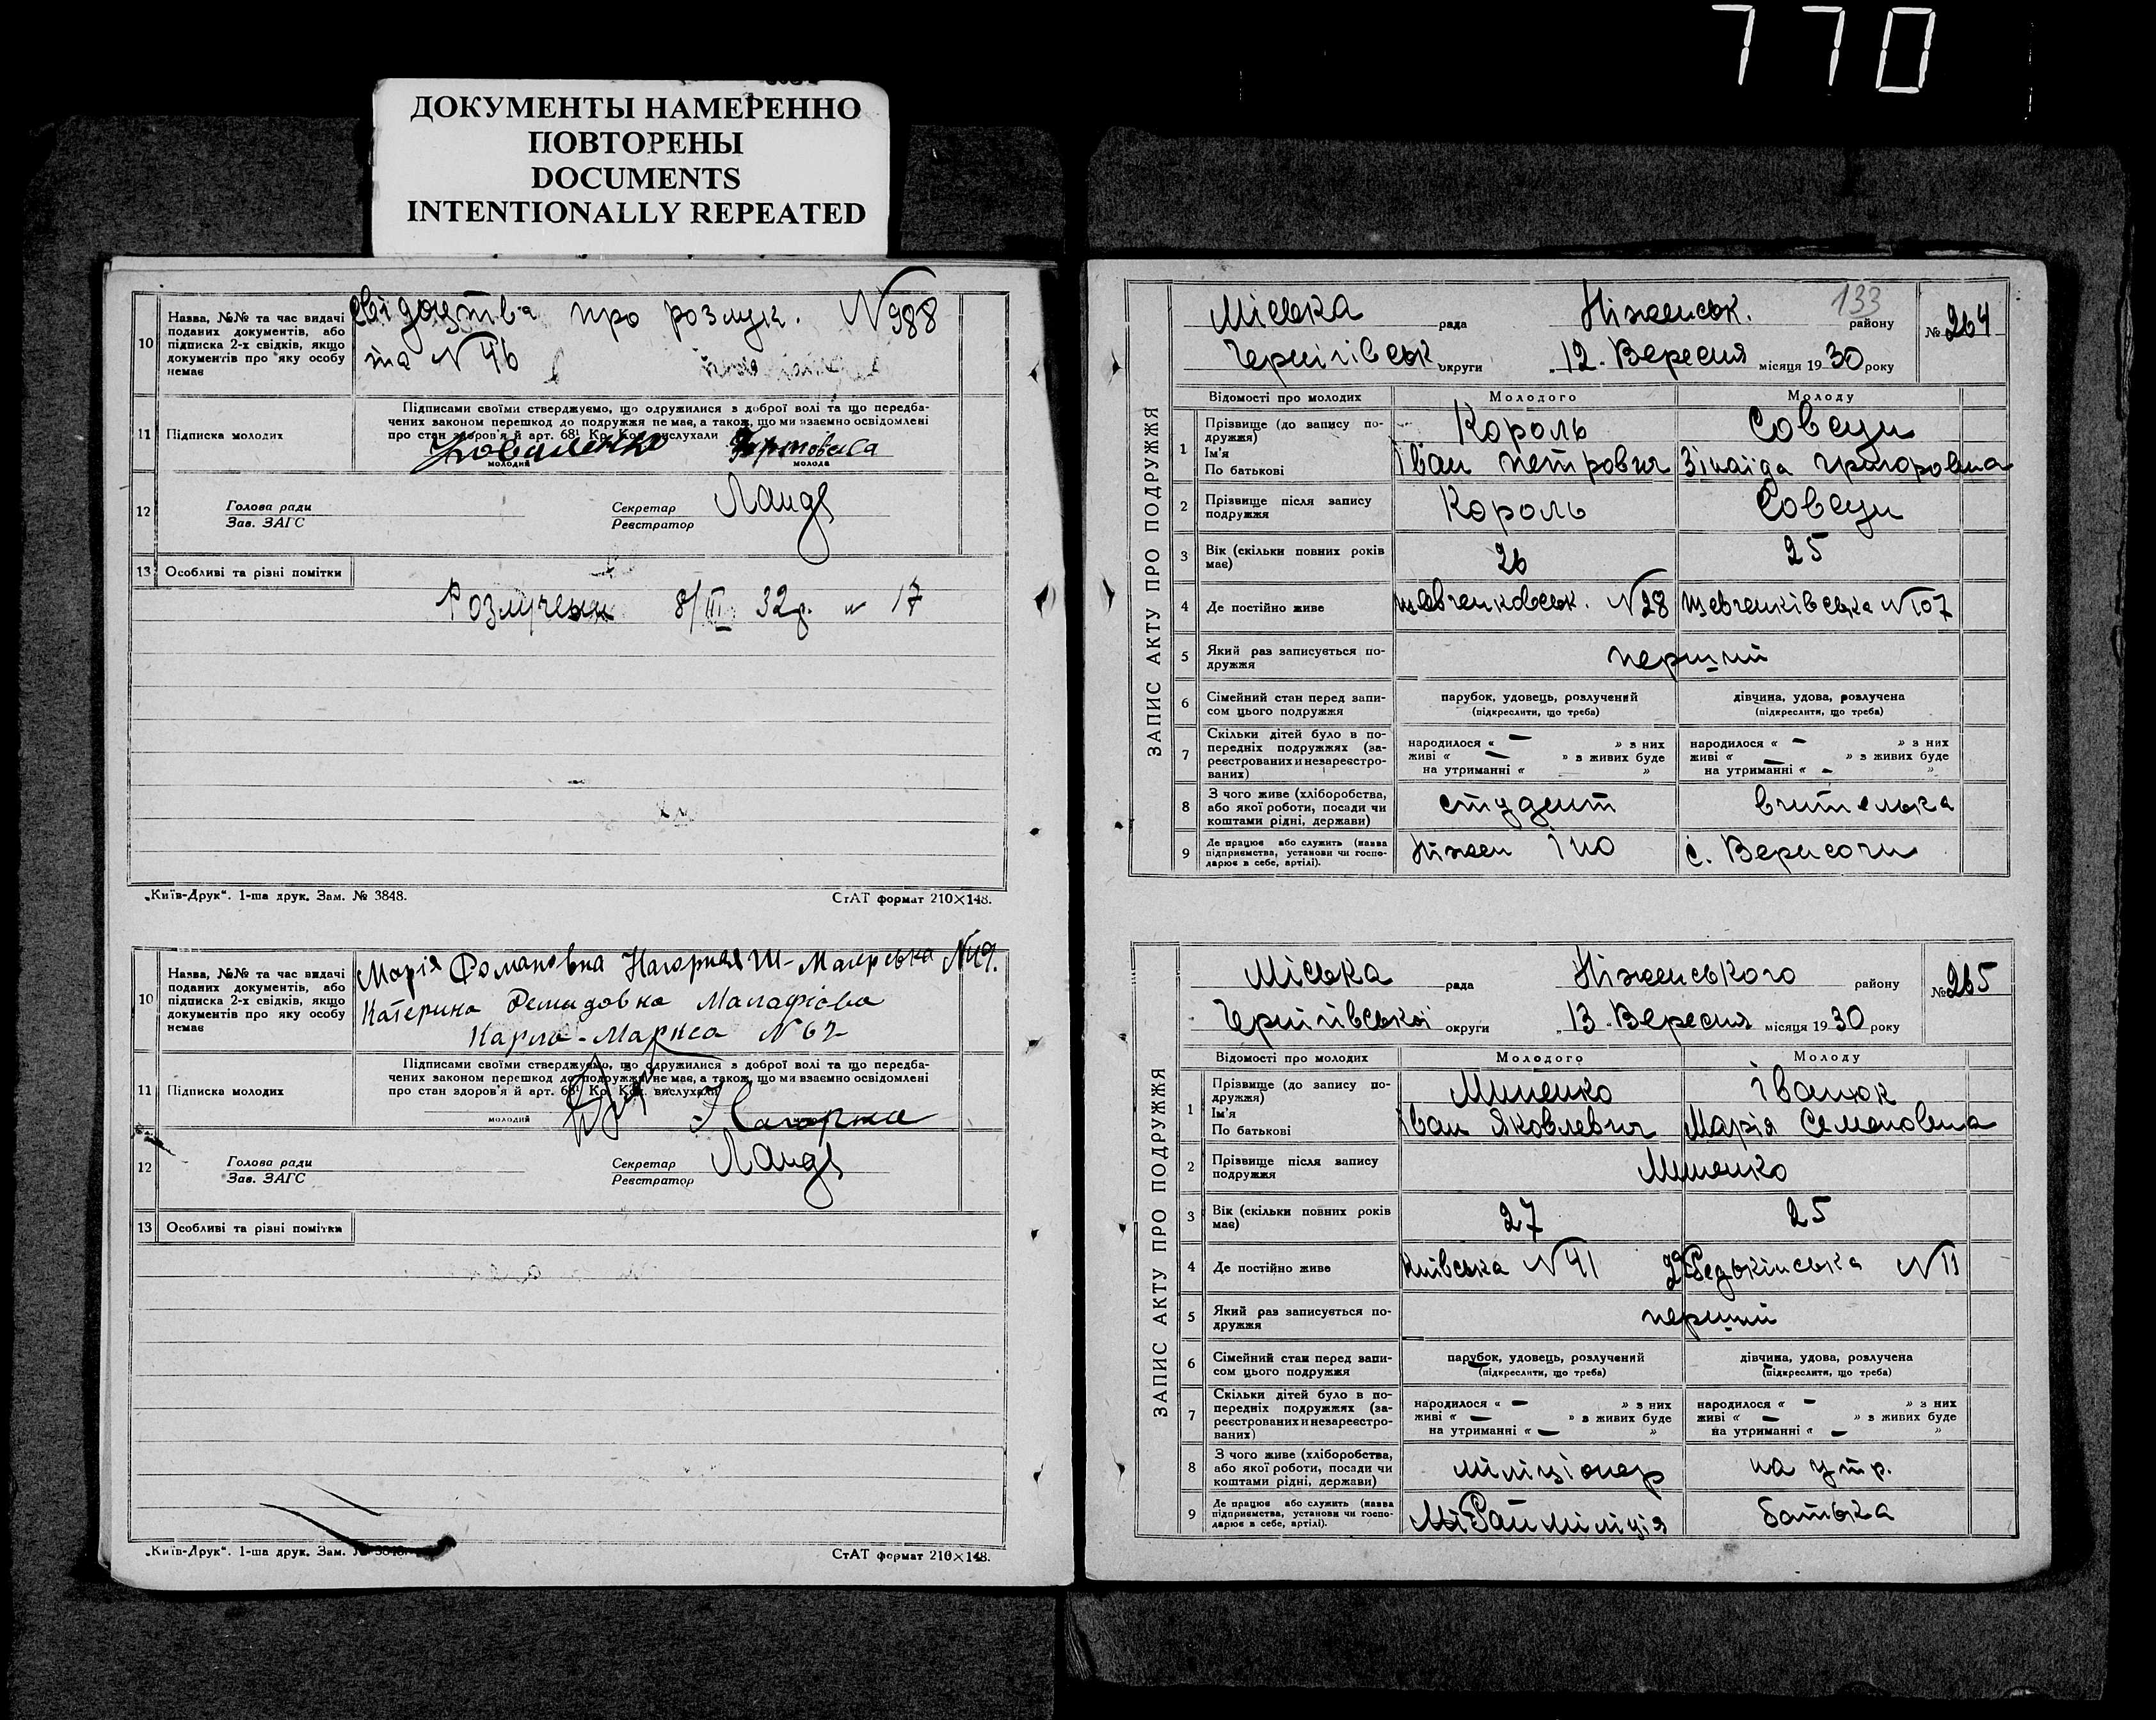 770
ДОКУМЕНТЫ НАМЕРЕННО
ПОВТОРЕНЫ
DOCUMENTS
INTENTIONALLY REPEATED
10
Назва, №№ та час видачі
поданих документів, або
підписка 2-х свідків, якщо
документів про яку особу
немає
свідоцтва про розлук. N 988
та N 46
11
Підписка молодих
Підписами своїми стверджуємо, що одружилися з доброї волі та що передба-
чених законом перешкод до подружжя не має, а також, що ми взаємно освідомлені
про стан здоров'я й арт. 68¹ Кр. Код. вислухали
Коваленко
молодий
молода
12
Голова ради
Зав. ЗАГС
Секретар
Реєстратор
Ланда
13
Особливі та різні помітки
Розлучени 8/III 32 р. N 17
„Київ-Друк“. 1-ша друк. Зам. № 3848.
СтАТ формат 210×148.
10
Назва, №№ та час видачі
поданих документів, або
підписка 2-х свідків, якщо
документів про яку особу
немає
Марія Фомановна Нагорная Ш-Магерська N 49.
Катерина Демидовна Малафієва
Карла-Маркса N 62
11
Підписка молодих
Підписами своїми стверджуємо, що одружилися з доброї волі та що передба-
чених законом перешкод до подружжя не має, а також, що ми взаємно освідомлені
про стан здоров'я й арт. 68¹ Кр. Код. вислухали
молодий
Нагорна
12
Голова ради
Зав. ЗАГС
Секретар
Реєстратор
Ланда
13
Особливі та різні помітки
„Київ-Друк“. 1-ша друк. Зам. № 3848.
СтАТ формат 210×148.
133
Міська рада Ніженськ. району № 264
Чернігівськ округи „12„ Вересня місяця 1930 року
ЗАПИС АКТУ ПРО ПОДРУЖЖЯ
Відомості про молодих
Молодого
Молоду
1
Прізвище (до запису по-
дружжя)
Ім'я
По батькові
Король
Іван Петрович
Совеци
Зінаїда Григоровна
2
Прізвище після запису
подружжя
Король
Совеци
3
Вік (скільки повних років
має)
26
25
4
Де постійно живе
Шевченковськ. N 28
Шевченківська N 107
5
Який раз записується по-
дружжя
перший
6
Сімейний стан перед запи-
сом цього подружжя
парубок, удовець, розлучений
(підкреслити, що треба)
дівчина, удова, розлучена
(підкреслити, що треба)
7
Скільки дітей було в по-
передніх подружжях (за-
реєстрованих и незареєстро-
ваних)
народилося « — » з них
живі « — » з живих буде
на утриманні « »
народилося « — » з них
живі « — » з живих буде
на утриманні « — »
8
З чого живе (хліборобства,
або якої роботи, посади чи
коштами рідні, держави)
студент
вчителька
9
Де працює або служить (назва
підприємства, установи чи госпо-
дарює в себе, артілі).
Ніжен ІНО
с. Верисочи
Міська рада Ніженського району № 265
Чернігівської округи „13„ Вересня місяця 1930 року
ЗАПИС АКТУ ПРО ПОДРУЖЖЯ
Відомості про молодих
Молодого
Молоду
1
Прізвище (до запису по-
дружжя)
Ім'я
По батькові
Миненко
Іван Яковлевич
Іванюк
Марія Семеновна
2
Прізвище після запису
подружжя
Миненко
3
Вік (скільки повних років
має)
27
25
4
Де постійно живе
Київська N 41
Редькінська N 11
5
Який раз записується по-
дружжя
перший
6
Сімейний стан перед запи-
сом цього подружжя
парубок, удовець, розлучений
(підкреслити, що треба)
дівчина, удова, розлучена
(підкреслити, що треба)
7
Скільки дітей було в по-
передніх подружжях (за-
реєстрованих и незареєстро-
ваних)
народилося « — » з них
живі « — » з живих буде
на утриманні « — »
народилося « — » з них
живі « — » з живих буде
на утриманні « — »
8
З чого живе (хліборобства,
або якої роботи, посади чи
коштами рідні, держави)
міліціонер
на утр.
9
Де працює або служить (назва
підприємства, установи чи госпо-
дарює в себе, артілі).
Райміліція
батька